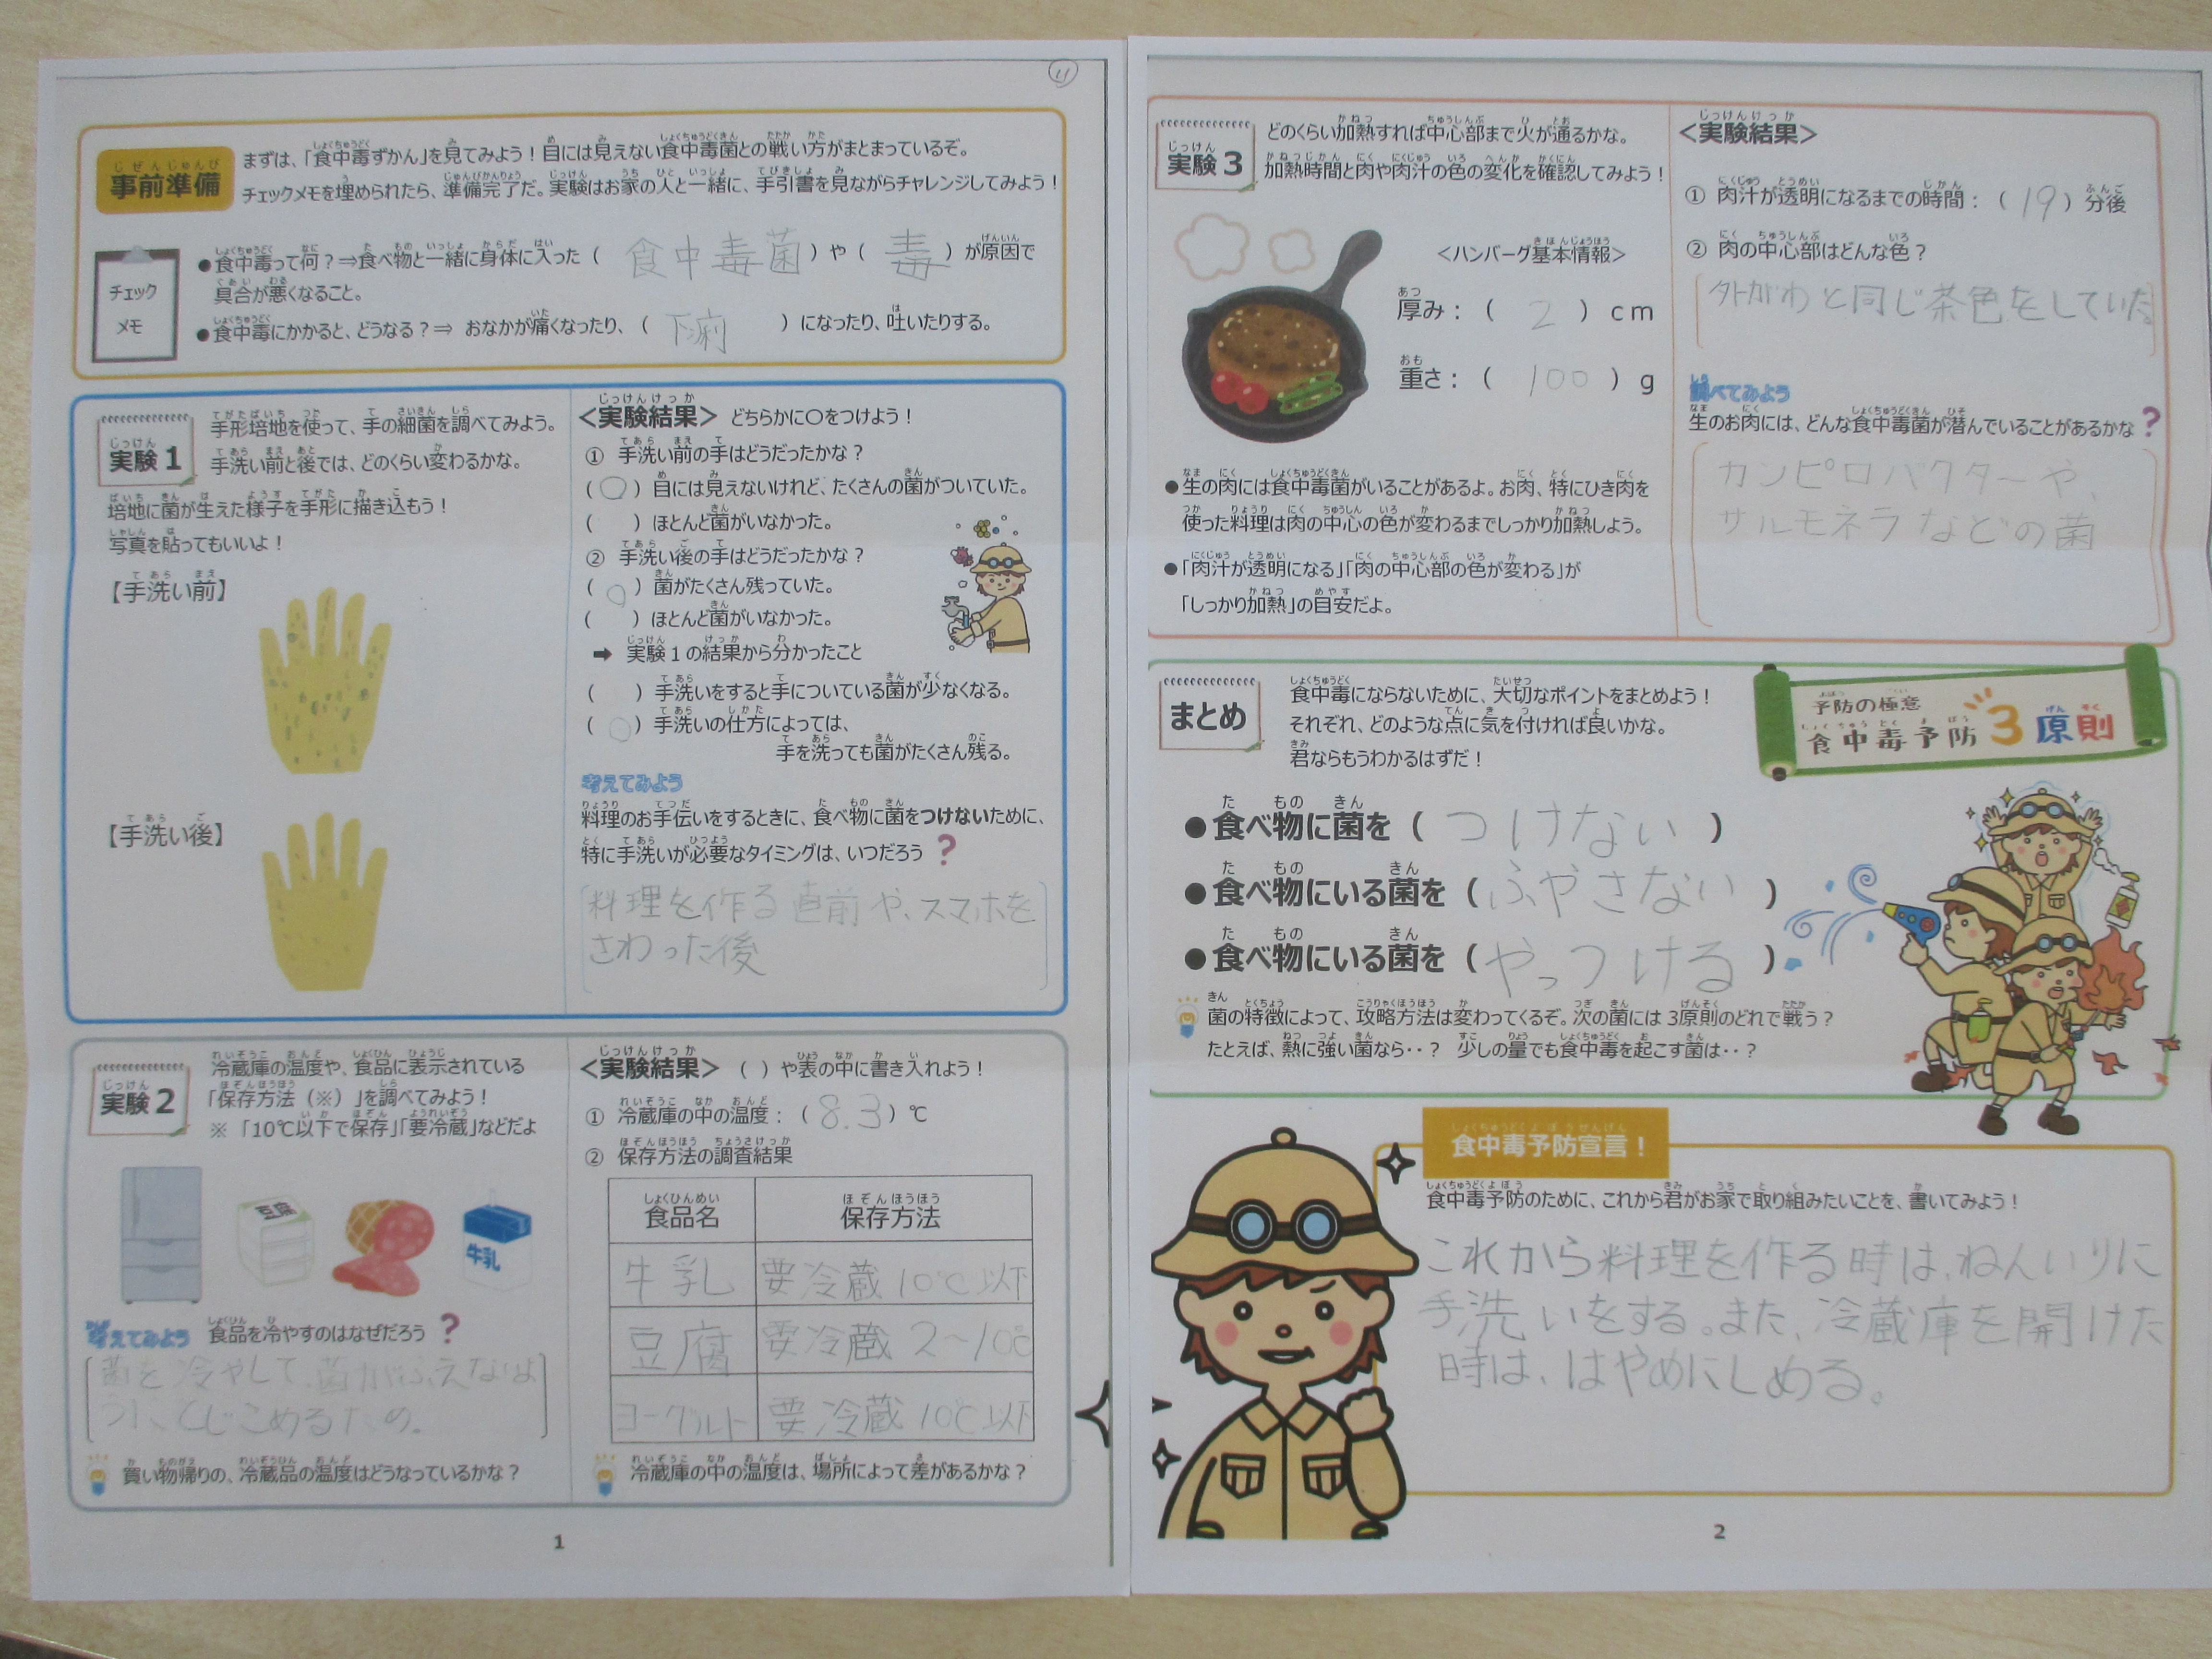 事前準備
まずは、「食中毒ずかん」を見てみよう！目には見えない食中毒菌との戦い方がまとまっているぞ。
チェックメモを埋められたら、準備完了だ。実験はお家の人と一緒に、手引書を見ながらチャレンジしてみよう！
チェック
メモ
●食中毒って何？⇒食べ物と一緒に身体に入った（ 食中毒菌 ）や（ 毒 ）が原因で
具合が悪くなること。
●食中毒にかかると、どうなる？⇒ おなかが痛くなったり、（ 下痢 ）になったり、吐いたりする。
実験1
手形培地を使って、手の細菌を調べてみよう。
手洗い前と後では、どのくらい変わるかな。
培地に菌が生えた様子を手形に描き込もう！
写真を貼ってもいいよ！
【手洗い前】
【手洗い後】
＜実験結果＞ どちらかに〇をつけよう！
① 手洗い前の手はどうだったかな？
（〇）目には見えないけれど、たくさんの菌がついていた。
（ ）ほとんど菌がいなかった。
② 手洗い後の手はどうだったかな？
（〇）菌がたくさん残っていた。
（ ）ほとんど菌がいなかった。
➡ 実験1の結果から分かったこと
（ ）手洗いをすると手についている菌が少なくなる。
（〇）手洗いの仕方によっては、
手を洗っても菌がたくさん残る。
考えてみよう
料理のお手伝いをするときに、食べ物に菌をつけないために、
特に手洗いが必要なタイミングは、いつだろう？
料理を作る直前や、スマホを
さわった後
実験2
冷蔵庫の温度や、食品に表示されている
「保存方法（※）」を調べてみよう！
※「10℃以下で保存」「要冷蔵」などだよ
豆腐
牛乳
考えてみよう 食品を冷やすのはなぜだろう？
菌を冷やして、菌がふえないよ
うにとじこめるため。
買い物帰りの、冷蔵品の温度はどうなっているかな？
＜実験結果＞ （ ）や表の中に書き入れよう！
① 冷蔵庫の中の温度：（8.3）℃
② 保存方法の調査結果
食品名 保存方法
牛乳 要冷蔵10℃以下
豆腐 要冷蔵 2～10℃
ヨーグルト 要冷蔵10℃以下
冷蔵庫の中の温度は、場所によって差があるかな？
1
実験3
どのくらい加熱すれば中心部まで火が通るかな。
加熱時間と肉や肉汁の色の変化を確認してみよう！
＜ハンバーグ基本情報＞
厚み：（ 2 ）cm
重さ：（ 100 ）g
●生の肉には食中毒菌がいることがあるよ。お肉、特にひき肉を
使った料理は肉の中心の色が変わるまでしっかり加熱しよう。
●「肉汁が透明になる」「肉の中心部の色が変わる」が
「しっかり加熱」の目安だよ。
＜実験結果＞
① 肉汁が透明になるまでの時間：（19）分後
② 肉の中心部はどんな色？
外がわと同じ茶色をしていた。
調べてみよう
生のお肉には、どんな食中毒菌が潜んでいることがあるかな？
カンピロバクターや、
サルモネラなどの菌
まとめ
食中毒にならないために、大切なポイントをまとめよう！
それぞれ、どのような点に気を付ければ良いかな。
君ならもうわかるはずだ！
予防の極意
食中毒予防3原則
●食べ物に菌を（つけない）
●食べ物にいる菌を（ふやさない）
●食べ物にいる菌を（やっつける）
菌の特徴によって、攻略方法は変わってくるぞ。次の菌には3原則のどれで戦う？
たとえば、熱に強い菌なら‥？ 少しの量でも食中毒を起こす菌は‥？
食中毒予防宣言！
食中毒予防のために、これから君がお家で取り組みたいことを、書いてみよう！
これから料理を作る時は、ねんいりに
手洗いをする。また、冷蔵庫を開けた
時は、はやめにしめる。
2